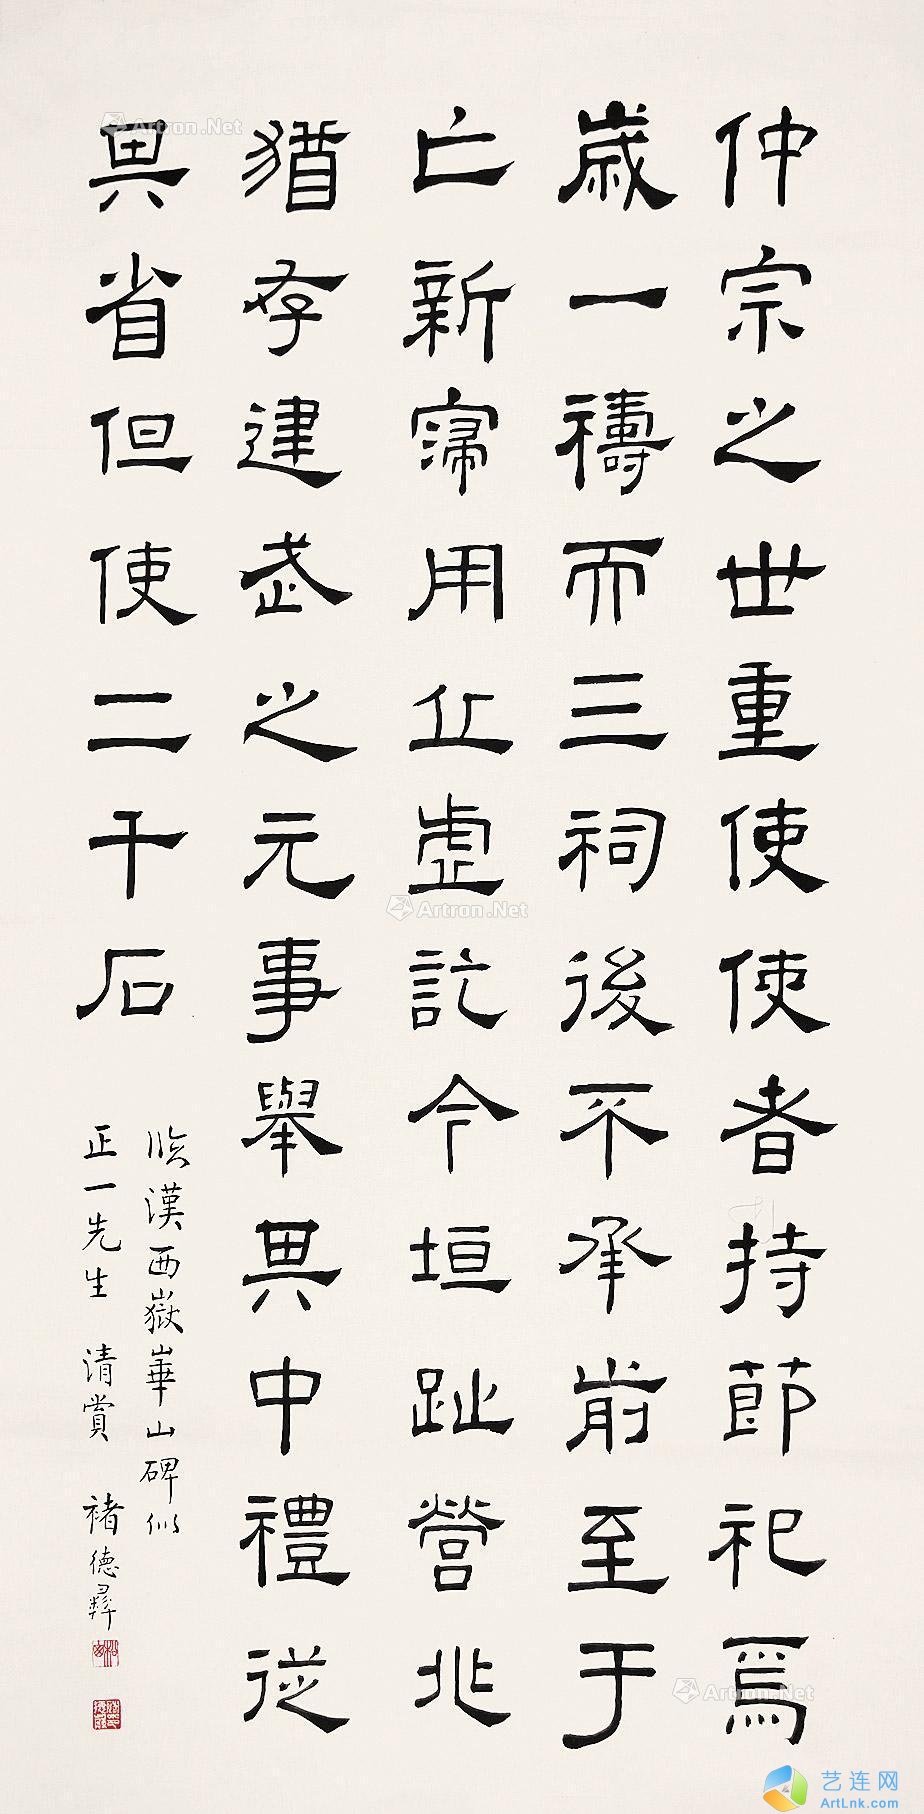 仲宗之世重使使者持節祀焉
歲一禱而三祠後不承前至于
亡新寖用丘虛訖今垣趾營兆
猶存建武之元事舉其中禮從
其省但使二千石
臨漢西嶽華山碑似
正一先生 清賞 褚德彝
Artron.Net
Artron.Net
Artron.Net
艺连网
ArtLnk.com